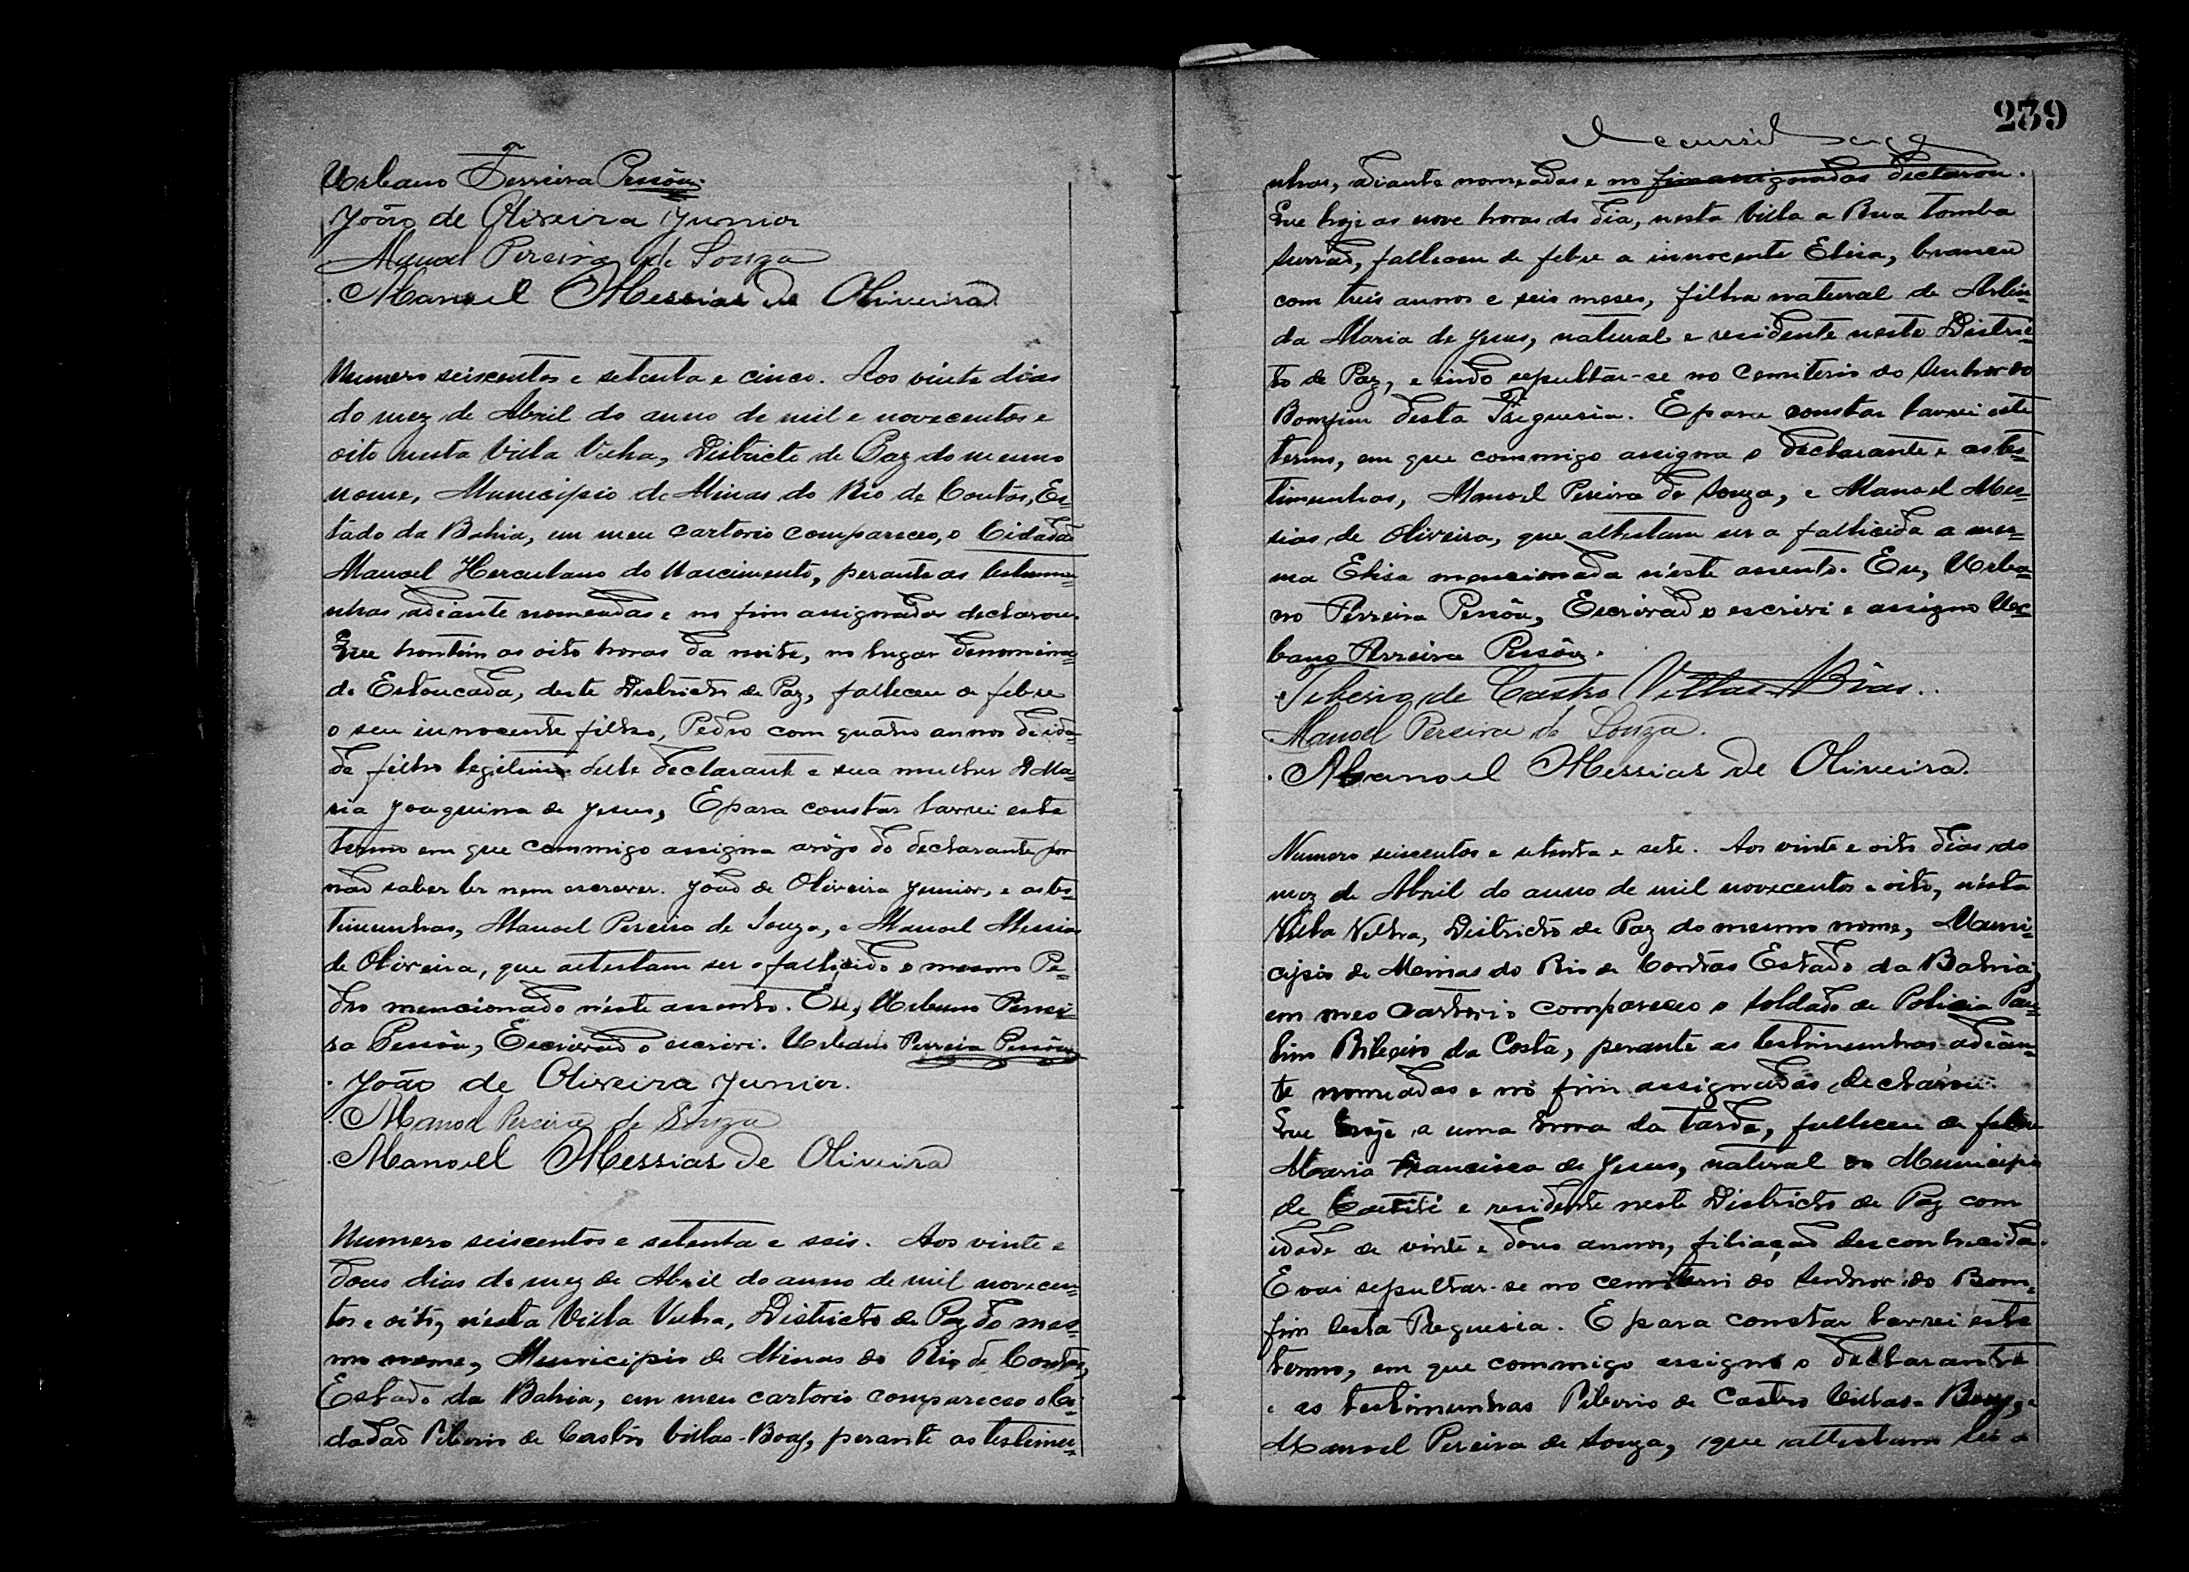 Urbano Ferreira Pessôa.
João de Oliveira Junior
Manoel Pereira de Souza
Manoel Messias de Oliveira
Numero seiscentos e setenta e cinco. Aos vinte dias
do mez de Abril do anno de mil e novecentos e
oito nesta Villa Velha, Districto de Paz do mesmo
nome, Municipio de Minas do Rio de Contas, Es=
tado da Bahia, em meu cartorio compareceo, o Cidadão
Manoel Herculano do Nascimento, perante as testemu=
nhas adiante nomeadas e no fim assignadas declarou.
Que hontem as oito horas da noite, no lugar denomina=
do Estoucada, deste Districto de Paz, falleceu de febre
o seu innocente filho, Pedro com quatro annos de ida=
de filho legitimo deste declarante e sua mulher D. Ma=
ria Joaquina de Jesus, E para constar lavrei este
termo em que commigo assigna arôgo do declarante por
não saber ler nem escrever. João de Oliveira Junior, e as tes=
timunhas, Manoel Pereira de Souza, e Manoel Messias
de Oliveira, que attestam ser o fallicido o mesmo Pe=
dro mencionado n'este assento. Eu, Urbano Ferrei=
ra Pessôa, Escrivão o escrivi. Urbano Ferreira Pessôa
João de Oliveira Junior.
Manoel Pereira de Souza
Manoel Messias de Oliveira
Numero seiscentos e setenta e seis. Aos vinte e
dous dias do mez de Abril do anno de mil novecen=
tos e oito, n'esta Villa Velha, Districto de Paz do mes=
mo nome, Municipio de Minas do Rio de Contas,
Estado da Bahia, em meu cartorio compareceo o Ci=
dadão Tiberio de Castro Villas-Boas, perante as testimu=
239
nhas, adiante nomeadas e no fim assignadas declarou.
Que hoje as nove horas do dia, nesta Villa a Rua Tomba
falleceu de febre a innocente Elisa, branca
com treis annos e seis meses, filha natural de Arlin=
da Maria de Jesus, natural e residente neste Distric=
to de Paz, e indo sepultar-se no Cemiterio do Senhor do
Bomfim desta Freguesia. E para constar lavrei este
termo, em que commigo assigna o declarante e as tes=
timunhas, Manoel Pereira de Souza, e Manoel Mes=
sias de Oliveira, que attestam ser a fallicida a mes=
ma Elisa mencionada n'este assento. Eu, Urba=
no Ferreira Pessôa, Escrivão o escrivi e assigno Ur=
bano Ferreira Pessôa.
Tiberio de Castro Villas Bôas.
Manoel Pereira de Souza.
Manoel Messias de Oliveira.
Numero seiscentos e setenta e sete. Aos vinte e oito dias do
mez de Abril do anno de mil novecentos e oito, n'esta
Villa Velha, Districto de Paz do mesmo nome, Muni=
cipio de Minas do Rio de Contas Estado da Bahia,
em meo cartorio compareceo o soldado de Policia
Ribeiro da Costa, perante as testimunhas adian=
te nomeadas e no fim assignadas, declarou.
Que hoje a uma hora da tarde, falleceu de febre
Maria Francisca de Jesus, natural do Municipio
de Caetité e residente neste Districto de Paz com
idade de vinte e dous annos, filiação desconhecida.
E vai sepultar-se no cemiterio do Senhor do Bom=
fim desta Freguesia. E para constar lavrei este
termo, em que commigo assigna o declarante
e as testimunhas Tiberio de Castro Villas-Boas, e
Manoel Pereira de Souza, que attestam ser a